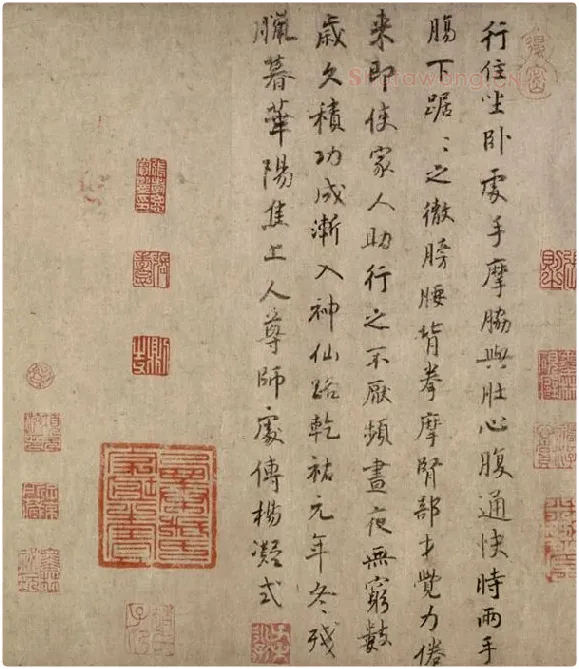 行住坐卧處手摩脇與肚心腹通快時兩手
腸下踞〻之徹膀腰背拳摩腎部才覺力倦
来即使家人助行之不厭頻晝夜無窮數
歲久積功成漸入神仙路乾祐元年冬残
臘暮華陽焦上人尊師處傳楊凝式